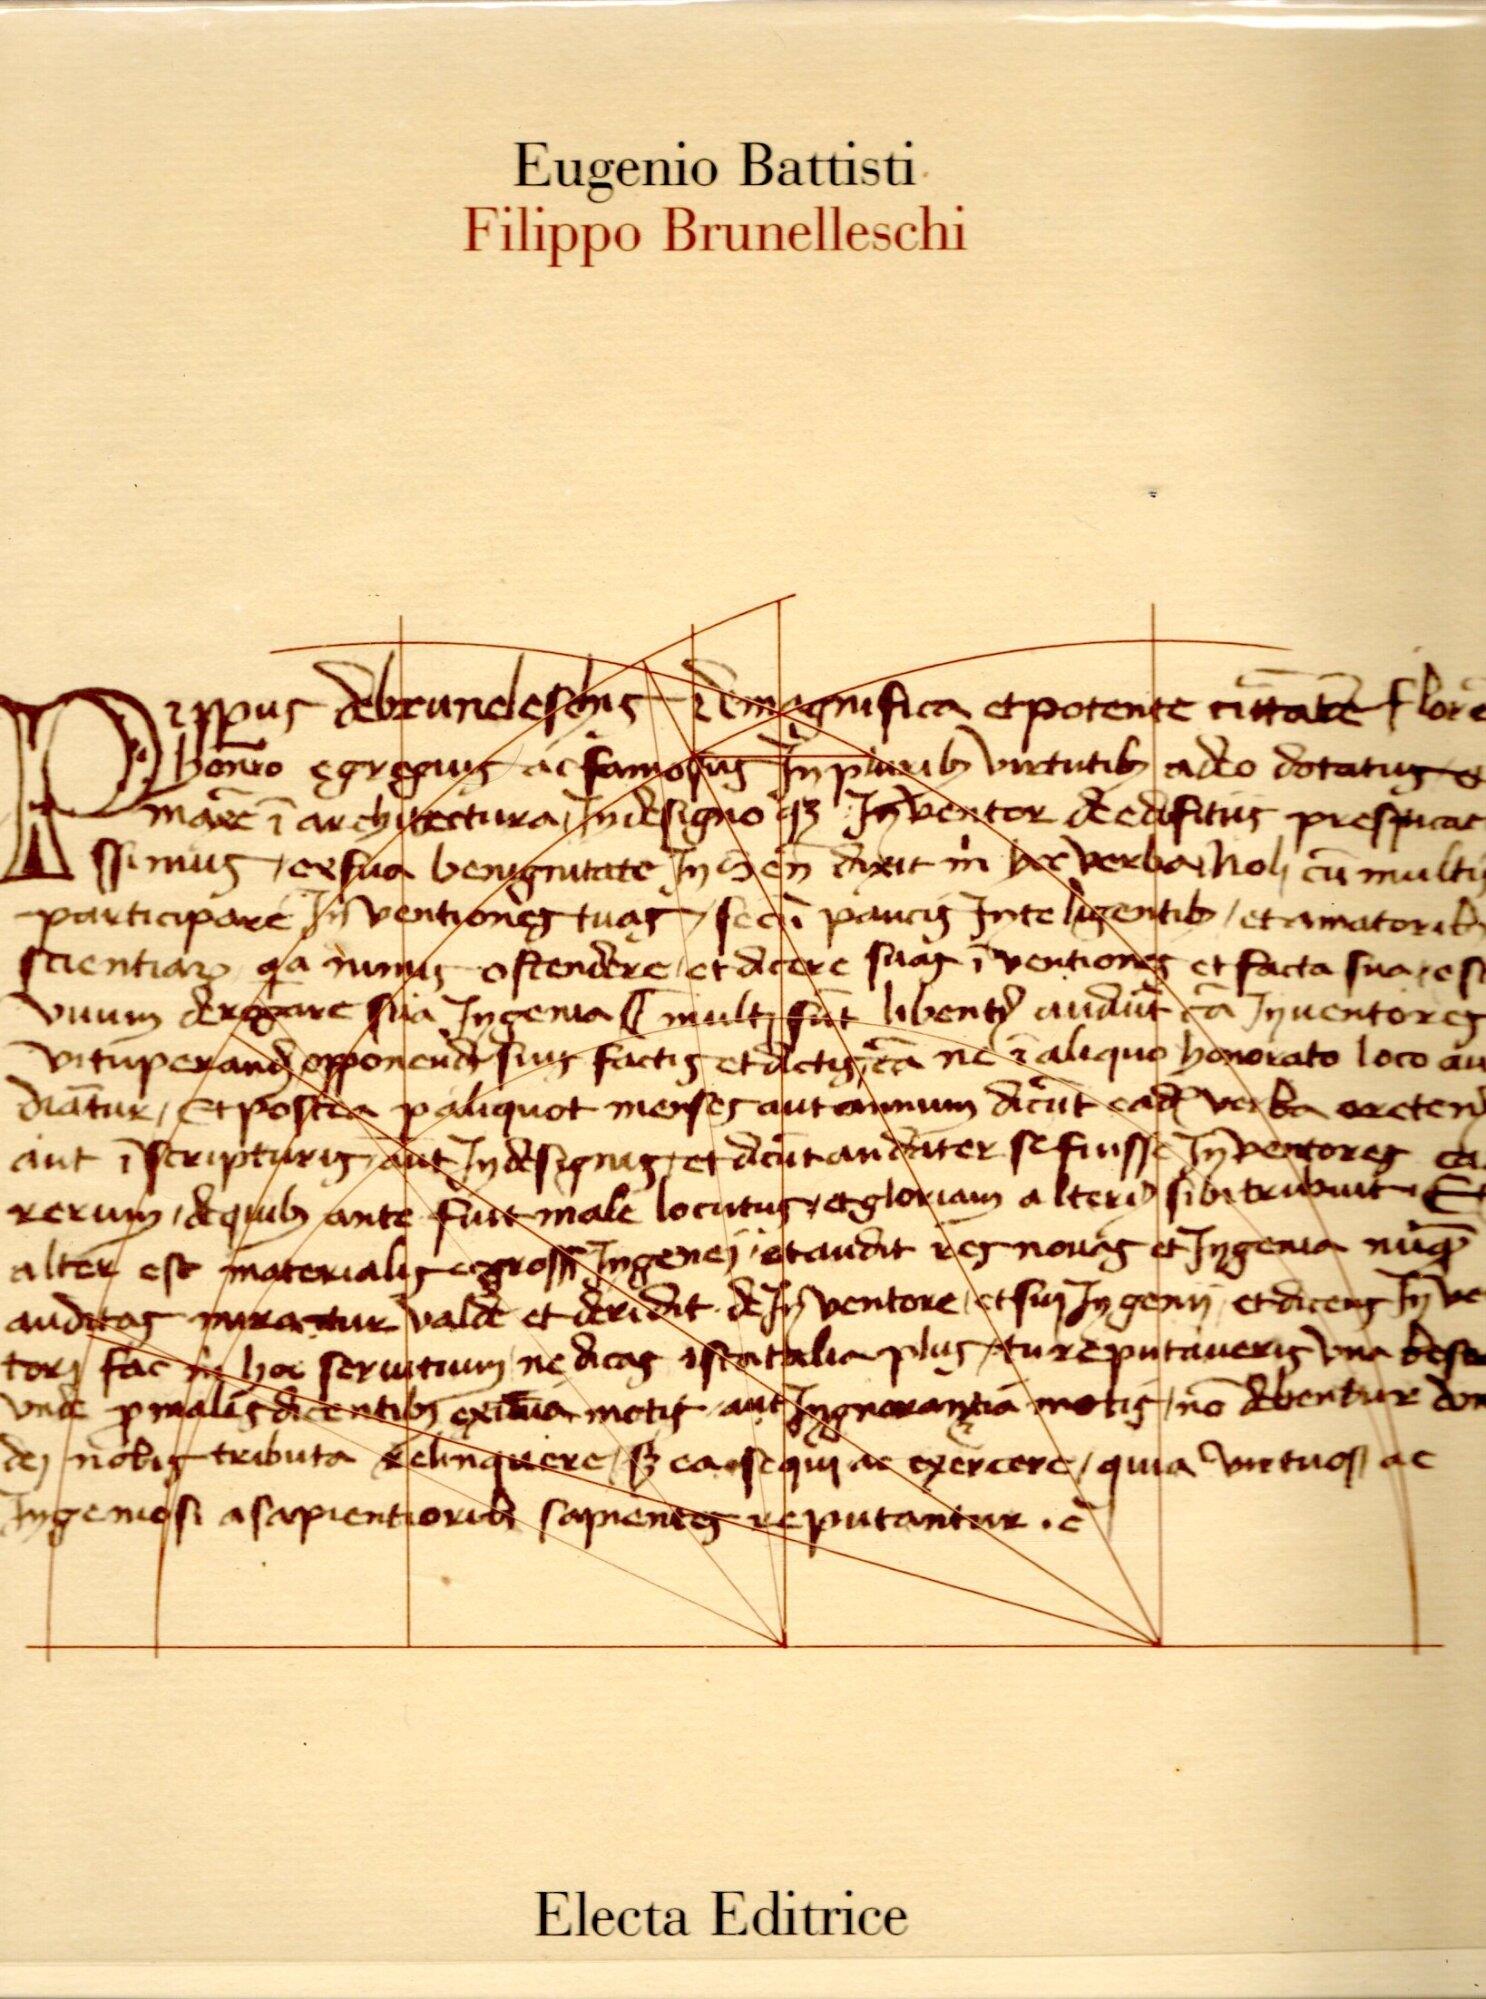 Eugenio Battisti
Filippo Brunelleschi
Pippus debruneleschis de magnifica et potente cittate Flore
egregius ac famosus In pluribȝ virtutibȝ adeo dotatus
ī architectura, In designo qȝ Inventor de edifitiis prespicac
ssimus, ex sua benignitate In dixit verba, Noli cū multis
participare Inventiones tuas, paucis Inteligentibȝ, et amatoribȝ
scientiarꝝ, qa nimis ostendere, et dicere suas īventiones et facta sua, est
unum derogare Ingenia multi sūt libentr audiūt Inventores
vituperand opponendo suis factis et dictis, ne ī aliquo honorato loco au
diātur, Et postea p aliquot menses aut annum dicūt ead verba
aut ī scripturis, aut In designis, et dicūt audaciter se fuisse Inventores
rerum, de quibȝ ante fuit male locutus, et gloriam alteriȝ sibi tribuit. Et
alter est materialis grossi Ingenii, et audit res novas et Ingenia nūqȝ
auditas miratur valde et deridit de Inventore, et sui Ingenii, et dicens Inve
tori fac hoc servitium, ne dicas ista talia plus, tu reputaveris una
unde p malis dicentibȝ ex īvidia motis, aut Ingnorantia motis, nō debentur don
dei nobis tributa relinquere, sȝ ea sequi ac exercere, quia virtuosi ac
Ingeniosi a sapientioribȝ sapientes reputantur.
Electa Editrice